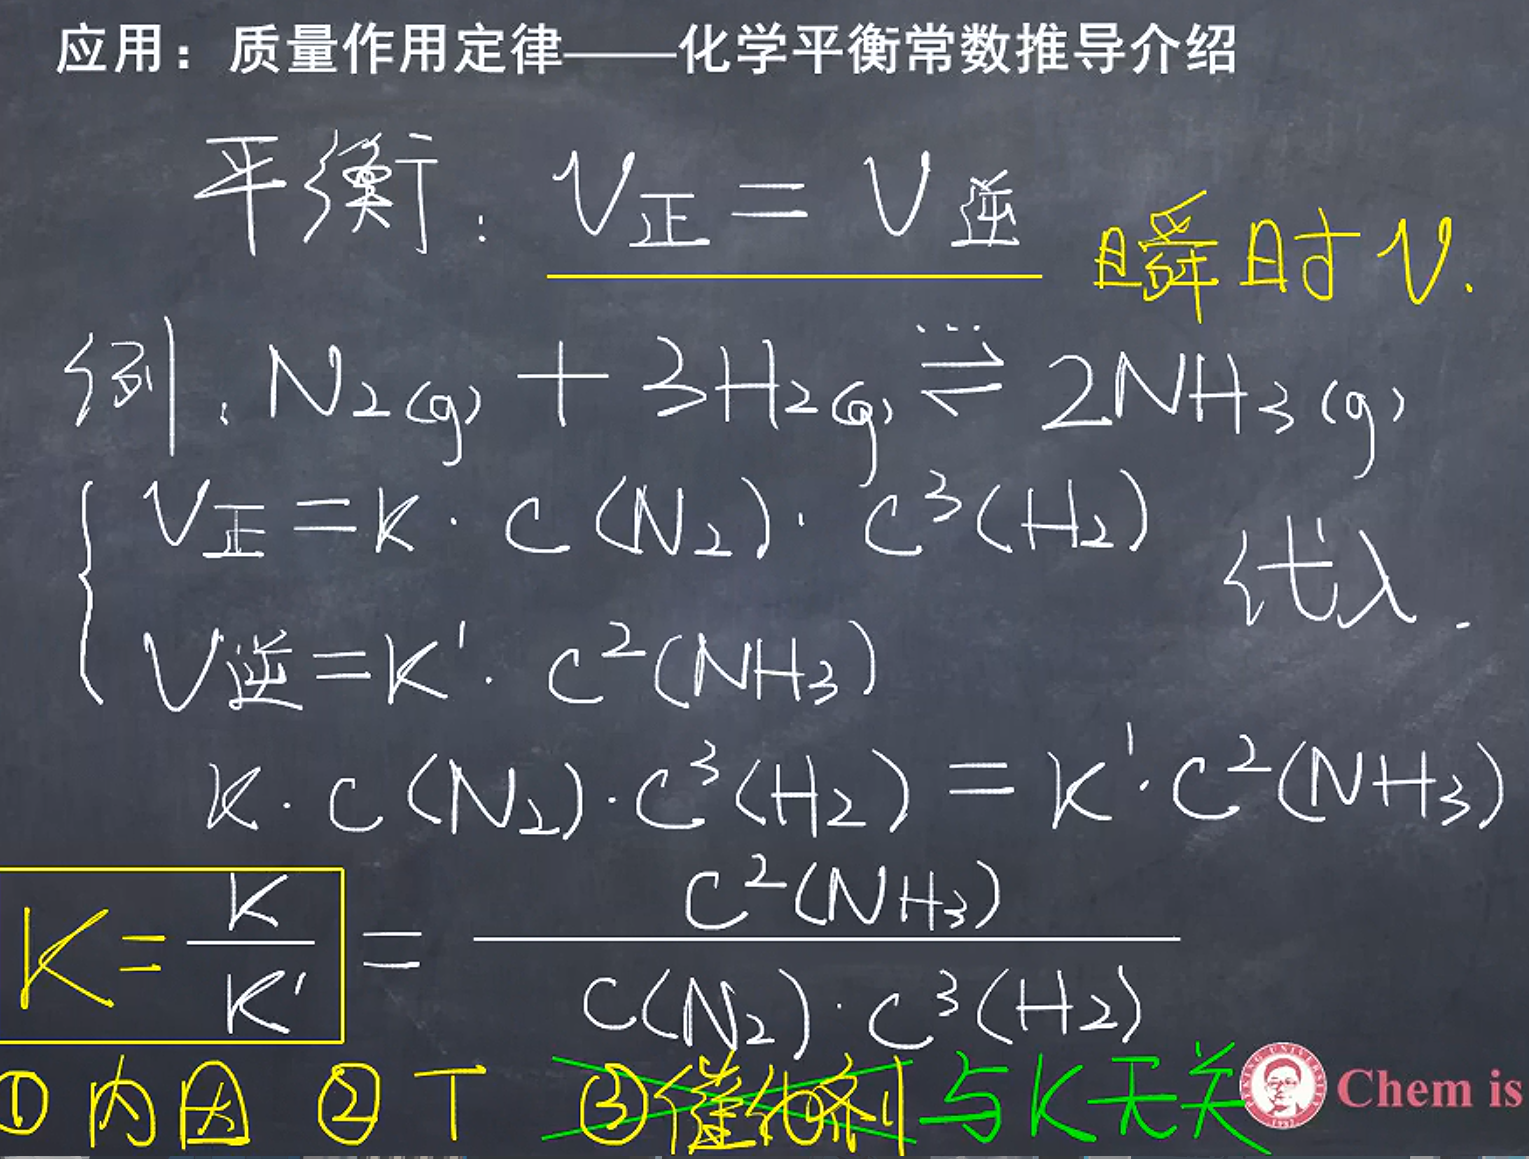 应用：质量作用定律——化学平衡常数推导介绍
平衡：V正 = V逆 瞬时 V.
例：N₂(g) + 3H₂(g) ⇌ 2NH₃(g)
V正 = K · C(N₂) · C³(H₂)
代入.
V逆 = K' · C²(NH₃)
K · C(N₂) · C³(H₂) = K' · C²(NH₃)
K = K/K' = C²(NH₃) / C(N₂) · C³(H₂)
① 内因 ② T ③ 催化剂 与K无关
Chem is